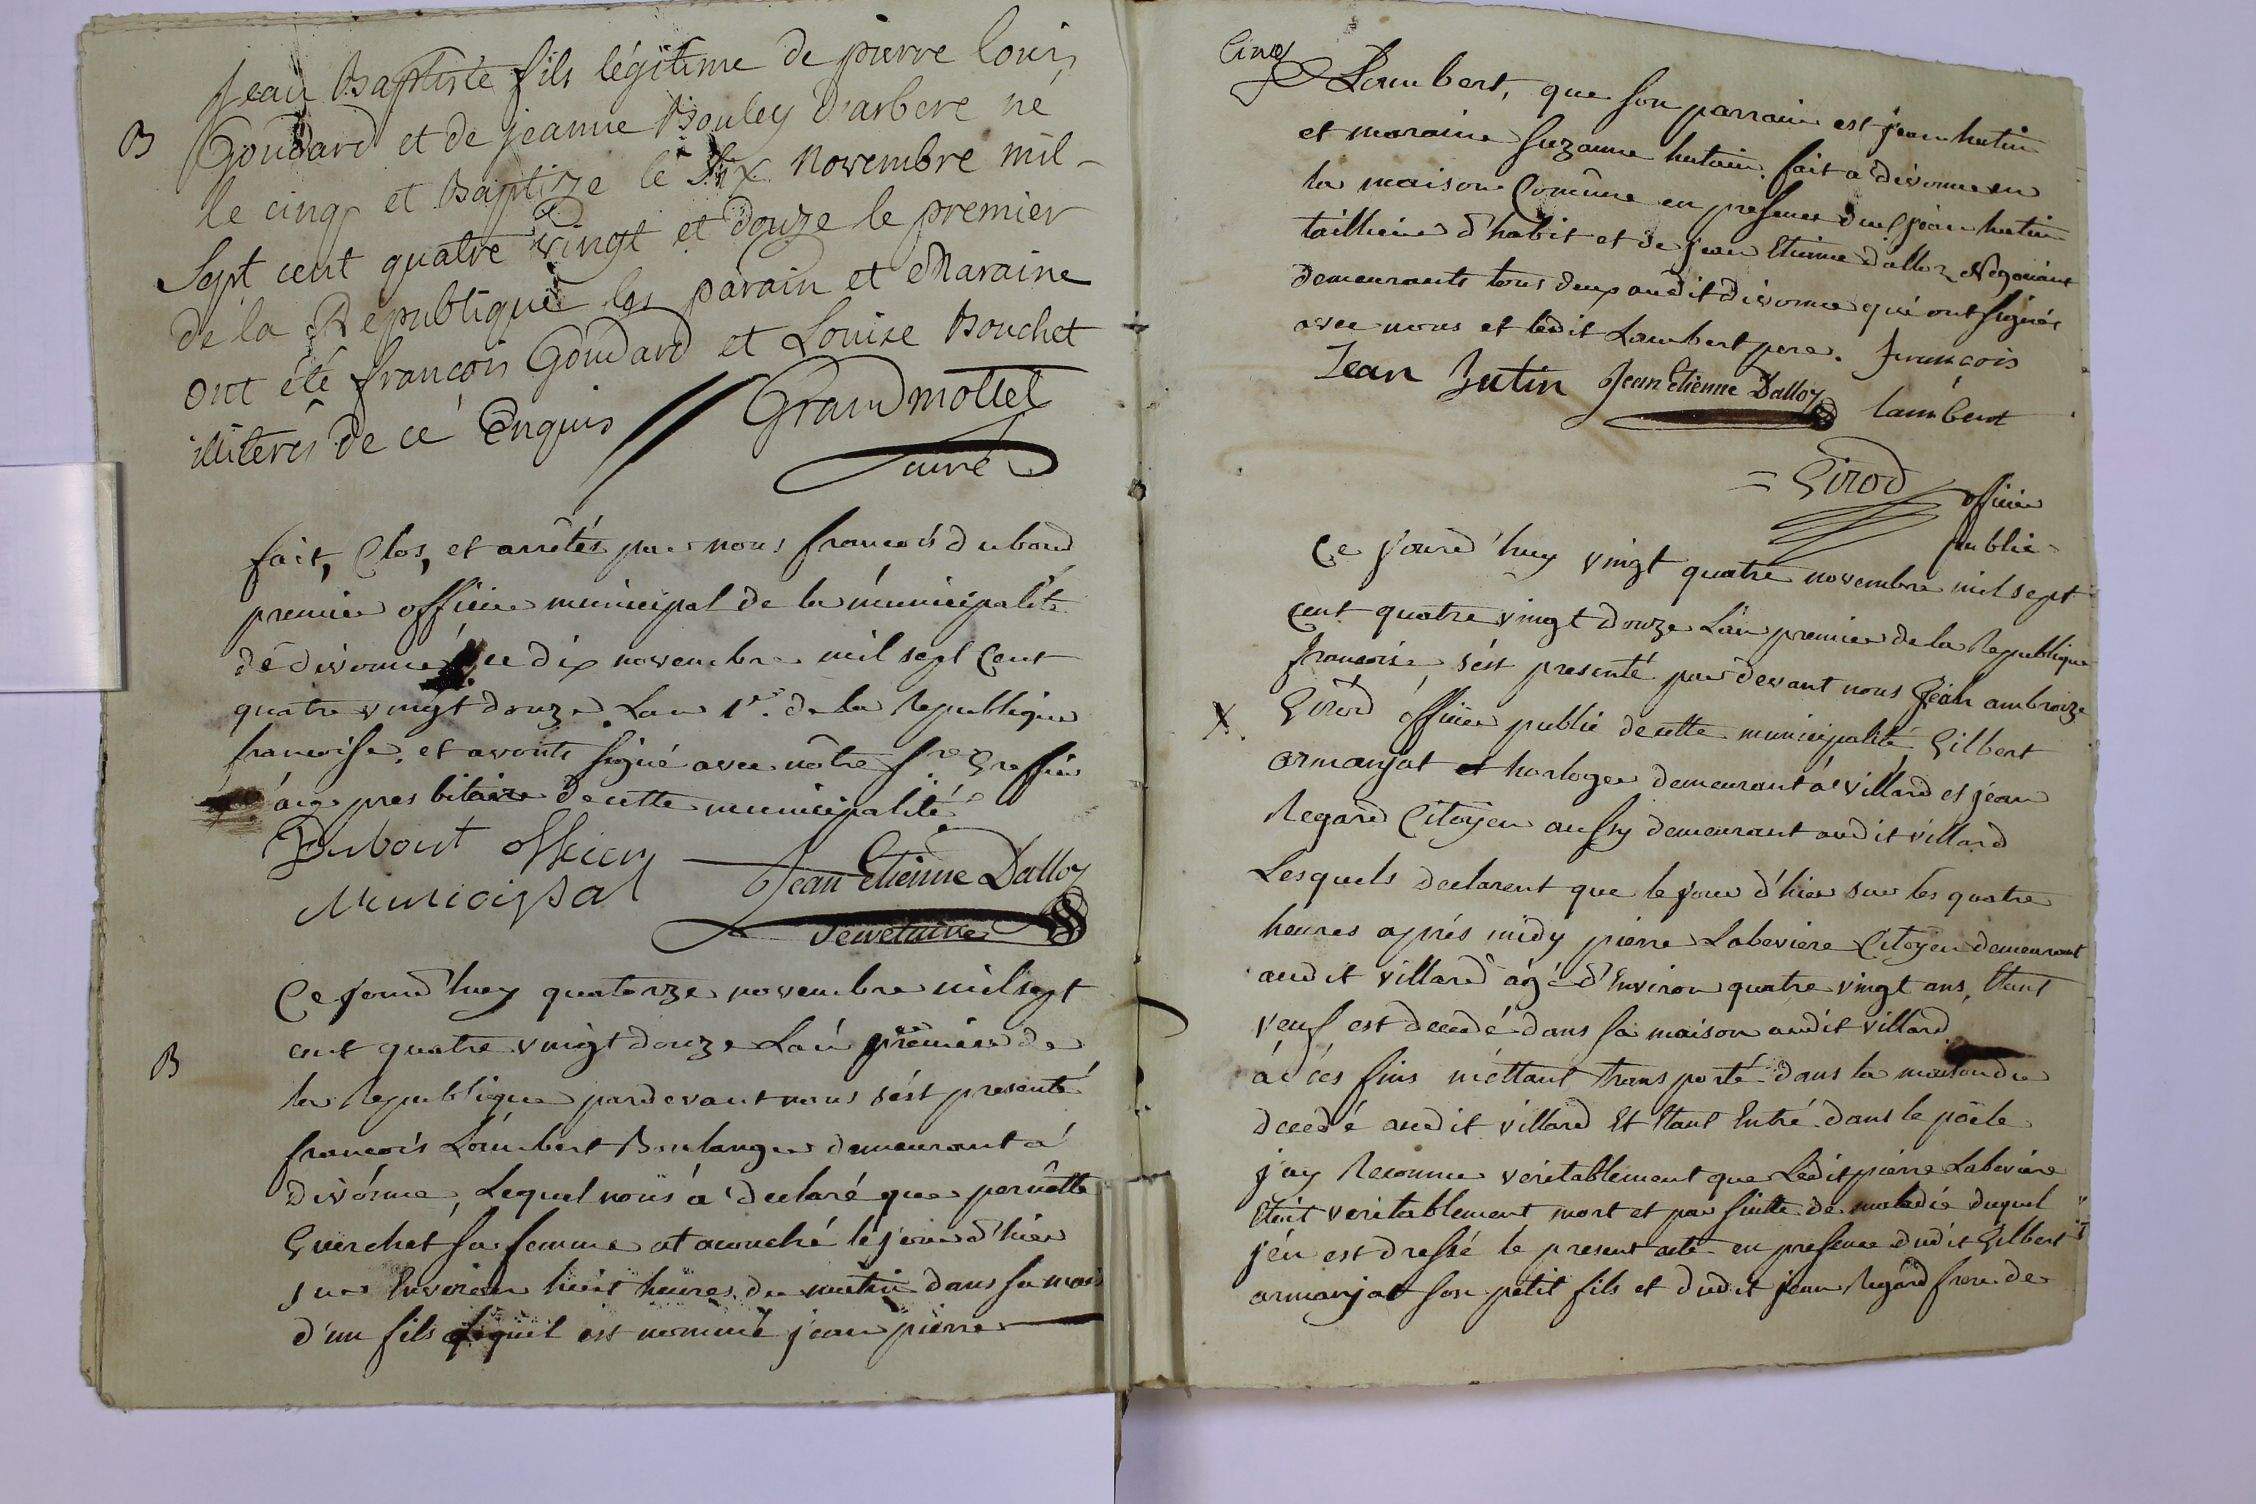 Jean Baptiste fils légitime de pierre louis
B
Goudard et de jeanne Bouley d'arbere né
le cinq et Baptize le six novembre mil-
sept cent quatre vingt et douze le premier
de la Republique les parain et Maraine
ont été françois Goudard et Louise Bouchet
illiterés de ce Enquis // Grandmottet
curé
fait, Clos, et arrêtés par nous francois dubout
premier officier municipal de la municipalité
de divonne ce dix novembre mil sept Cent
quatre vingt douze Lan 1er. de la Republique
francoise. et avonts signé avec nôtre sre Greffier
au presbitaire de cette municipalité
Dubout officier
Municipal
Jean Etienne Dalloz
Secretaire
Ce jourd'huy quatorze novembre mil sept
cent quatre vingt douze Lan premier de
B
la Republique pardevant nous s'est presenté
francois Lambert Boulanger demeurant a
divonne, Lequel nous a declaré que pernette
Guerchet sa femme at acouché le jour d'hier
sur Environ huit heures du matin dans sa mais
d'un fils lequel est nommé jean pierre
Cinq
Lambert, que son parrain est jean hutin
et maraine Suzanne hutin. fait a divonne en
la maison Comûne en presence dud jean hutin
taillieur d'habit et de jean Etienne dalloz Negociant
demeurants tous deux audit divonne qui ont signés
avec nous et ledit Lambert pere. francois
Jean hutin Jean Etienne Dalloz lambert
= Girod officier
public
Ce jourd'huy vingt quatre novembre mil sept
cent quatre vingt douze L'an premier de la Republique
francoise, s'est presenté par devant nous Jean ambroize
X.
Girod officier public de cette municipalité Gilbert
armanjat horloger demeurant a villard et jean
Regard Citoyen aussy demeurant audit villard
Lesquels declarent que le jour d'hier sur les quatre
heures aprés midy pierre Labeviere Citoyen demeurant
audit villard agé d'Environ quatre vingt ans, Etant
veuf est decedé dans sa maison audit villard
á ces fins m'éttant transporté dans la maison du
decedé audit villard Et Etant Entré dans le poële
j'ay Reconnu veritablement que Ledit pierre Labeviere
Etoit veritablement mort et par suitte de maladie duquel
j'en est dressé le present acte en presence dudit Gilbert
armanjat son petit fils et dudit jean Regard frere de